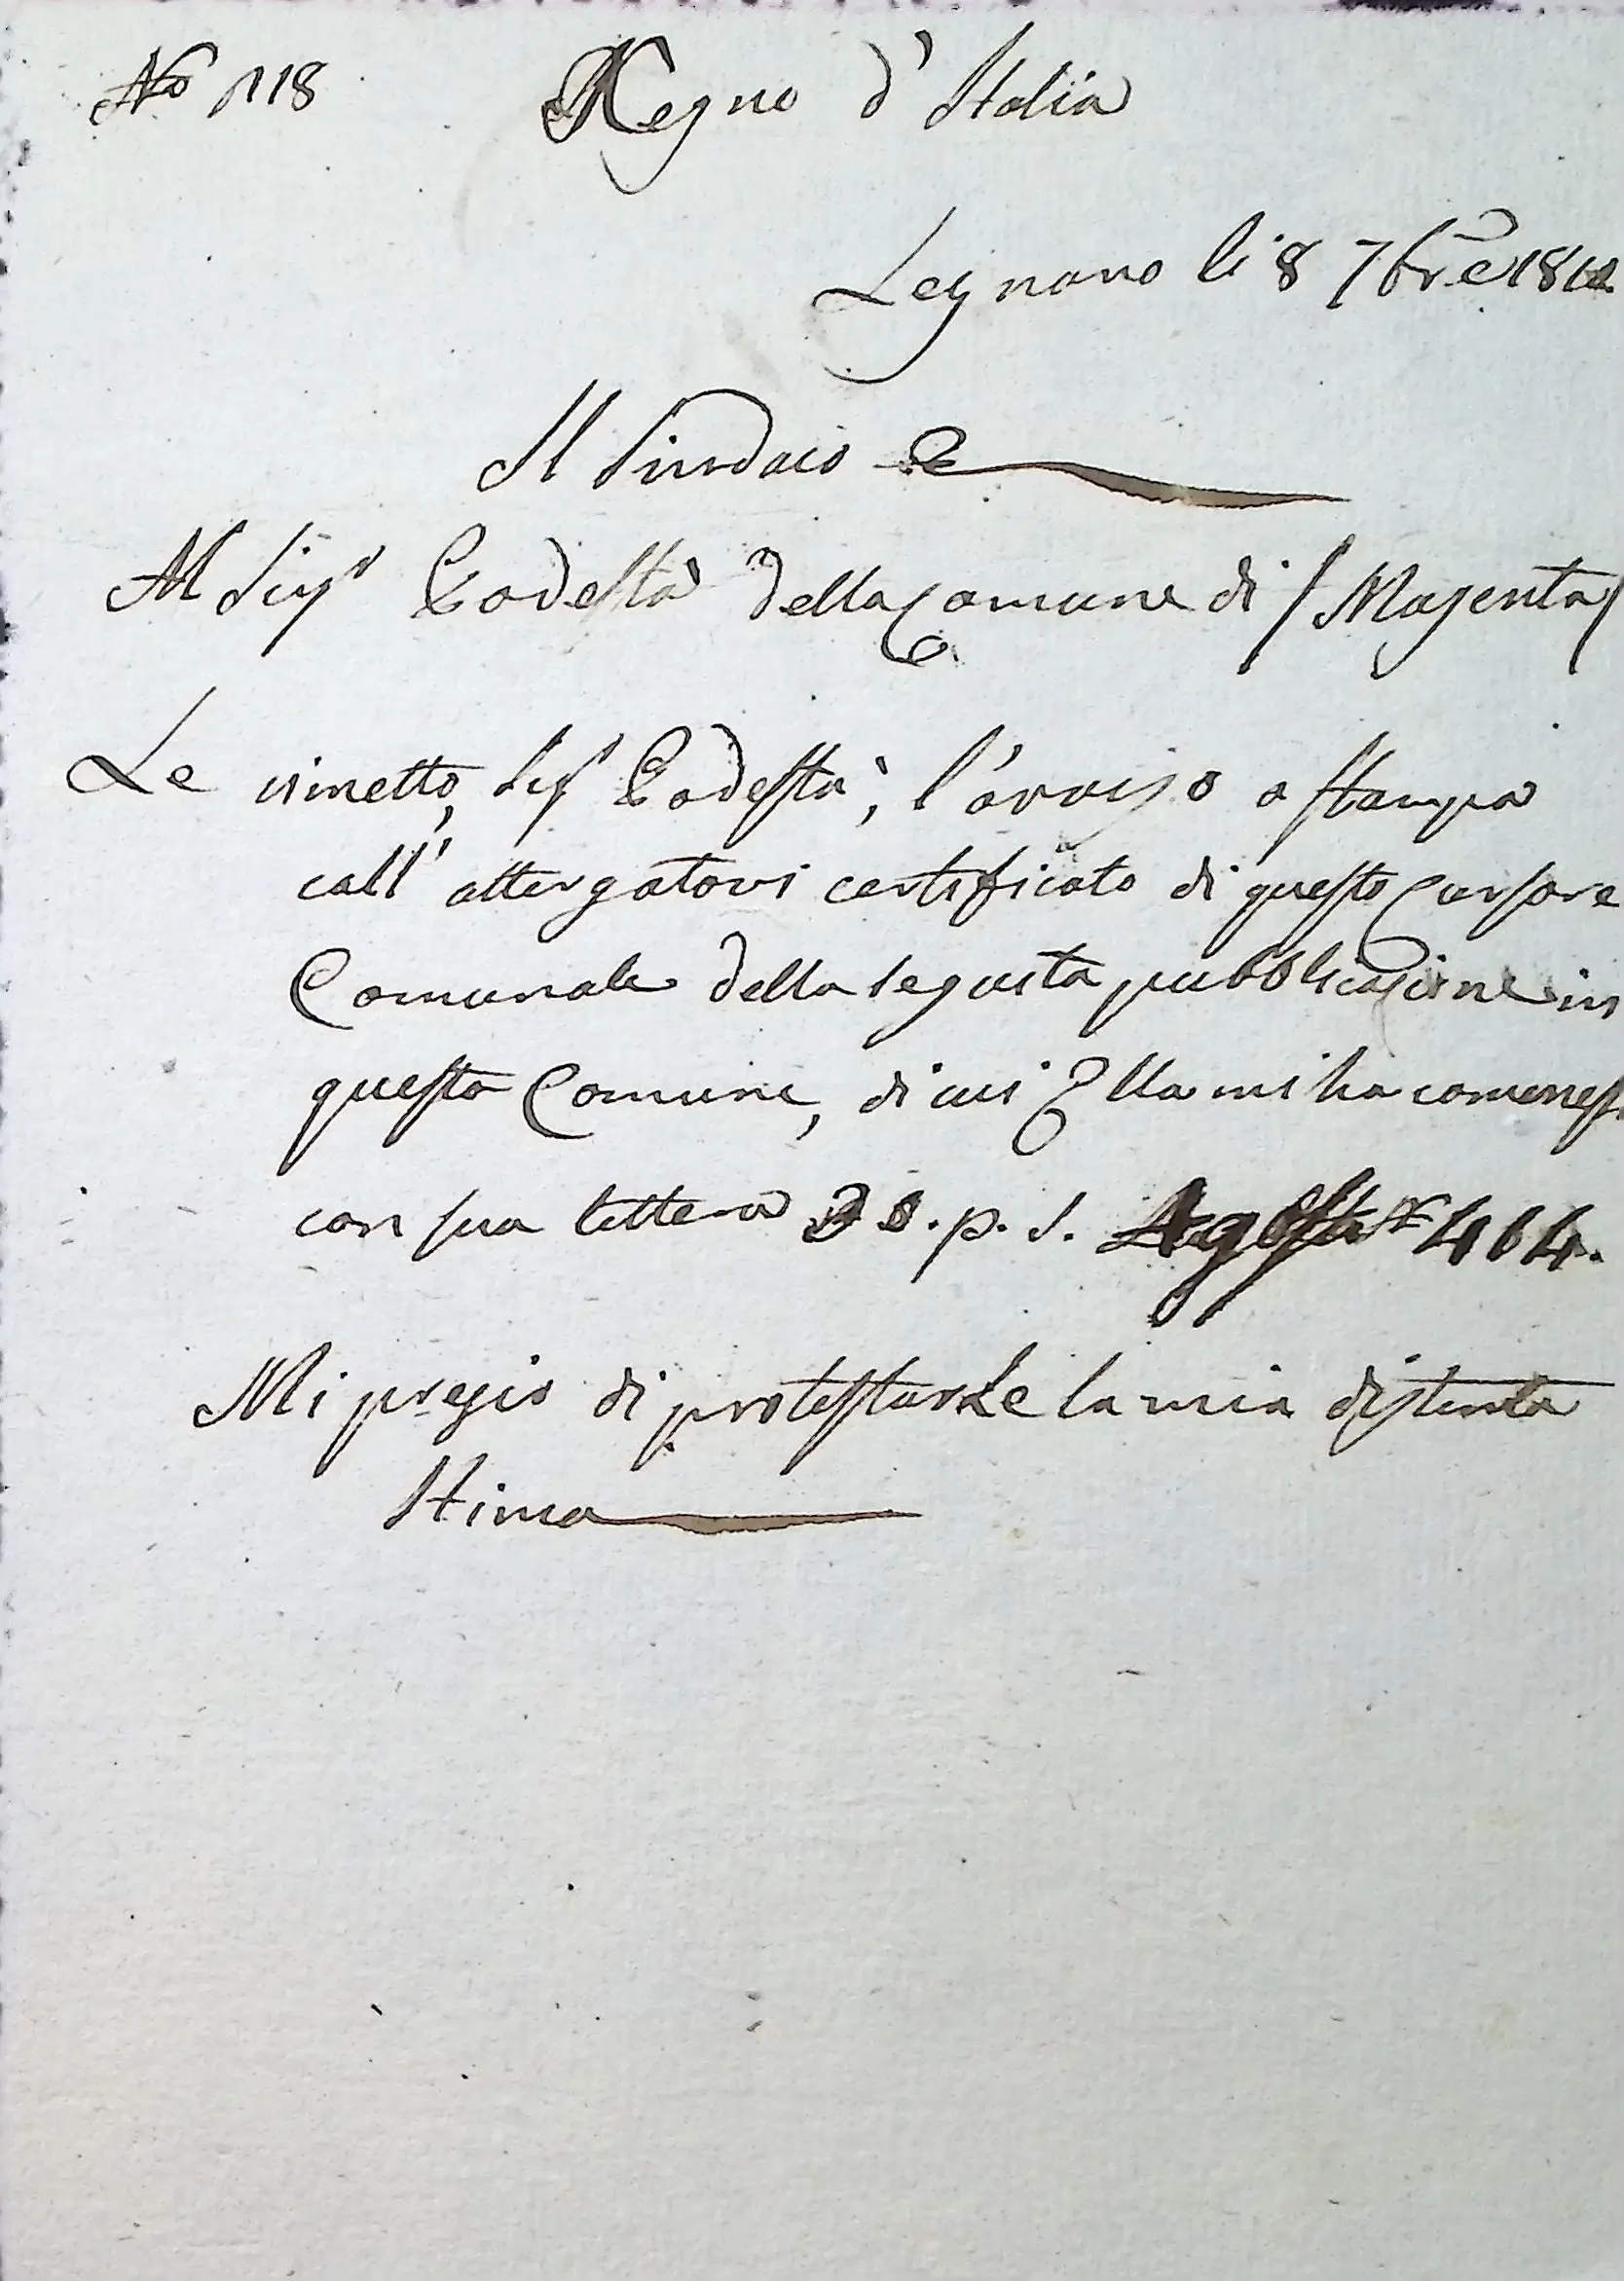 No 118 Regno d'Italia
Legnano li 8 7bre 181
Il Sindaco
Al Sigr Podestà della Comune di / Magenta /
Le rimetto, Sigr Podestà, l'avviso a stampa
coll' attergatovi certificato di questo Cursore
Comunale della seguita pubblicazione in
questa Comune, di cui Ella mi ha comess
con sua lettera p. s. Agosto No 464.
Mi pregio di protestarLe la mia distinta
Stima